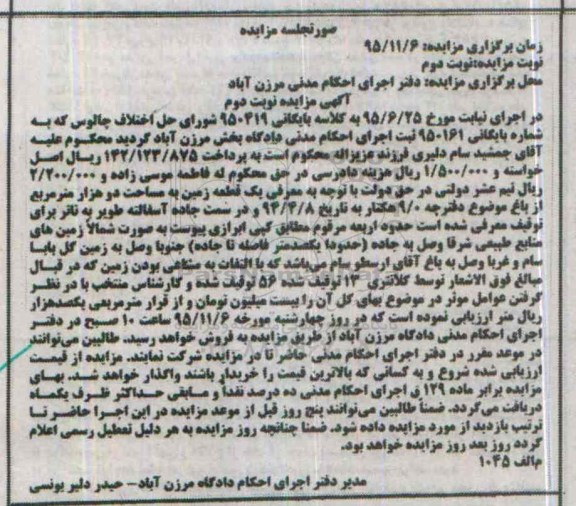 صورتجلسه مزایده
زمان برگزاری مزایده: ۹۵/۱۱/۶
نوبت مزایده:نوبت دوم
محل برگزاری مزایده: دفتر اجرای احکام مدنی مرزن آباد
آگهی مزایده نوبت دوم
در اجرای نیابت مورخ ۹۵/۶/۲۵ به کلاسه بایگانی ۹۵۰۴۱۹ شورای حل اختلاف چالوس که به
شماره بایگانی ۹۵۰۱۶۱ ثبت اجرای احکام مدنی دادگاه بخش مرزن آباد گردید محکوم علیه
آقای جمشید سام دلیری فرزند عزیزاله محکوم است به پرداخت ۱۴۲/۱۲۳/۸۷۵ ریال اصل
خواسته و ۱/۵۰۰/۰۰۰ ریال هزینه دادرسی در حق محکوم له فاطمه موسی زاده و ۲/۲۰۰/۰۰۰
ریال نیم عشر دولتی در حق دولت با توجه به معرفی یک قطعه زمین به مساحت دو هزار مترمربع
از باغ موضوع دفترچه ۹/۰ هکتار به تاریخ ۹۴/۴/۸ و در سمت جاده آسفالته طویر به ناتر برای
توقیف معرفی شده است حدود اربعه مرقوم مطابق کپی ابرازی پیوست به صورت شمالا زمین های
منابع طبیعی شرقا وصل به جاده (حدودا یکصدمتر فاصله تا جاده) جنوبا وصل به زمین گل بابا
سام و غربا وصل به باغ آقای ارسطو سام می‌باشد که با التفات به مشاعی بودن زمین که در قبال
مبالغ فوق الاشعار توسط کلانتری ۱۳ توقیف شده ۵۶ توقیف شده و کارشناس منتخب با در نظر
گرفتن عوامل موثر در موضوع بهای کل آن را بیست میلیون تومان و از قرار مترمربعی یکصدهزار
ریال متر ارزیابی نموده است که در روز چهارشنبه مورخه ۹۵/۱۱/۶ ساعت ۱۰ صبح در دفتر
اجرای احکام مدنی دادگاه مرزن آباد از طریق مزایده به فروش خواهد رسید. طالبین می‌توانند
در موعد مقرر در دفتر اجرای احکام مدنی حاضر تا در مزایده شرکت نمایند. مزایده از قیمت
ارزیابی شده شروع و به کسانی که بالاترین قیمت را خریدار باشند واگذار خواهد شد. بهای
مزایده برابر ماده ۱۲۹ ق اجرای احکام مدنی ده درصد نقداً و مابقی حداکثر ظرف یکماه
دریافت می‌گردد. ضمناً طالبین می‌توانند پنج روز قبل از موعد مزایده در این اجرا حاضر تا
ترتیب بازدید از مورد مزایده داده شود. ضمنا چنانچه روز مزایده به هر دلیل تعطیل رسمی اعلام
گردد روز بعد روز مزایده خواهد بود.
م‌الف ۱۰۳۵
مدیر دفتر اجرای احکام دادگاه مرزن آباد- حیدر دلیر یونسی